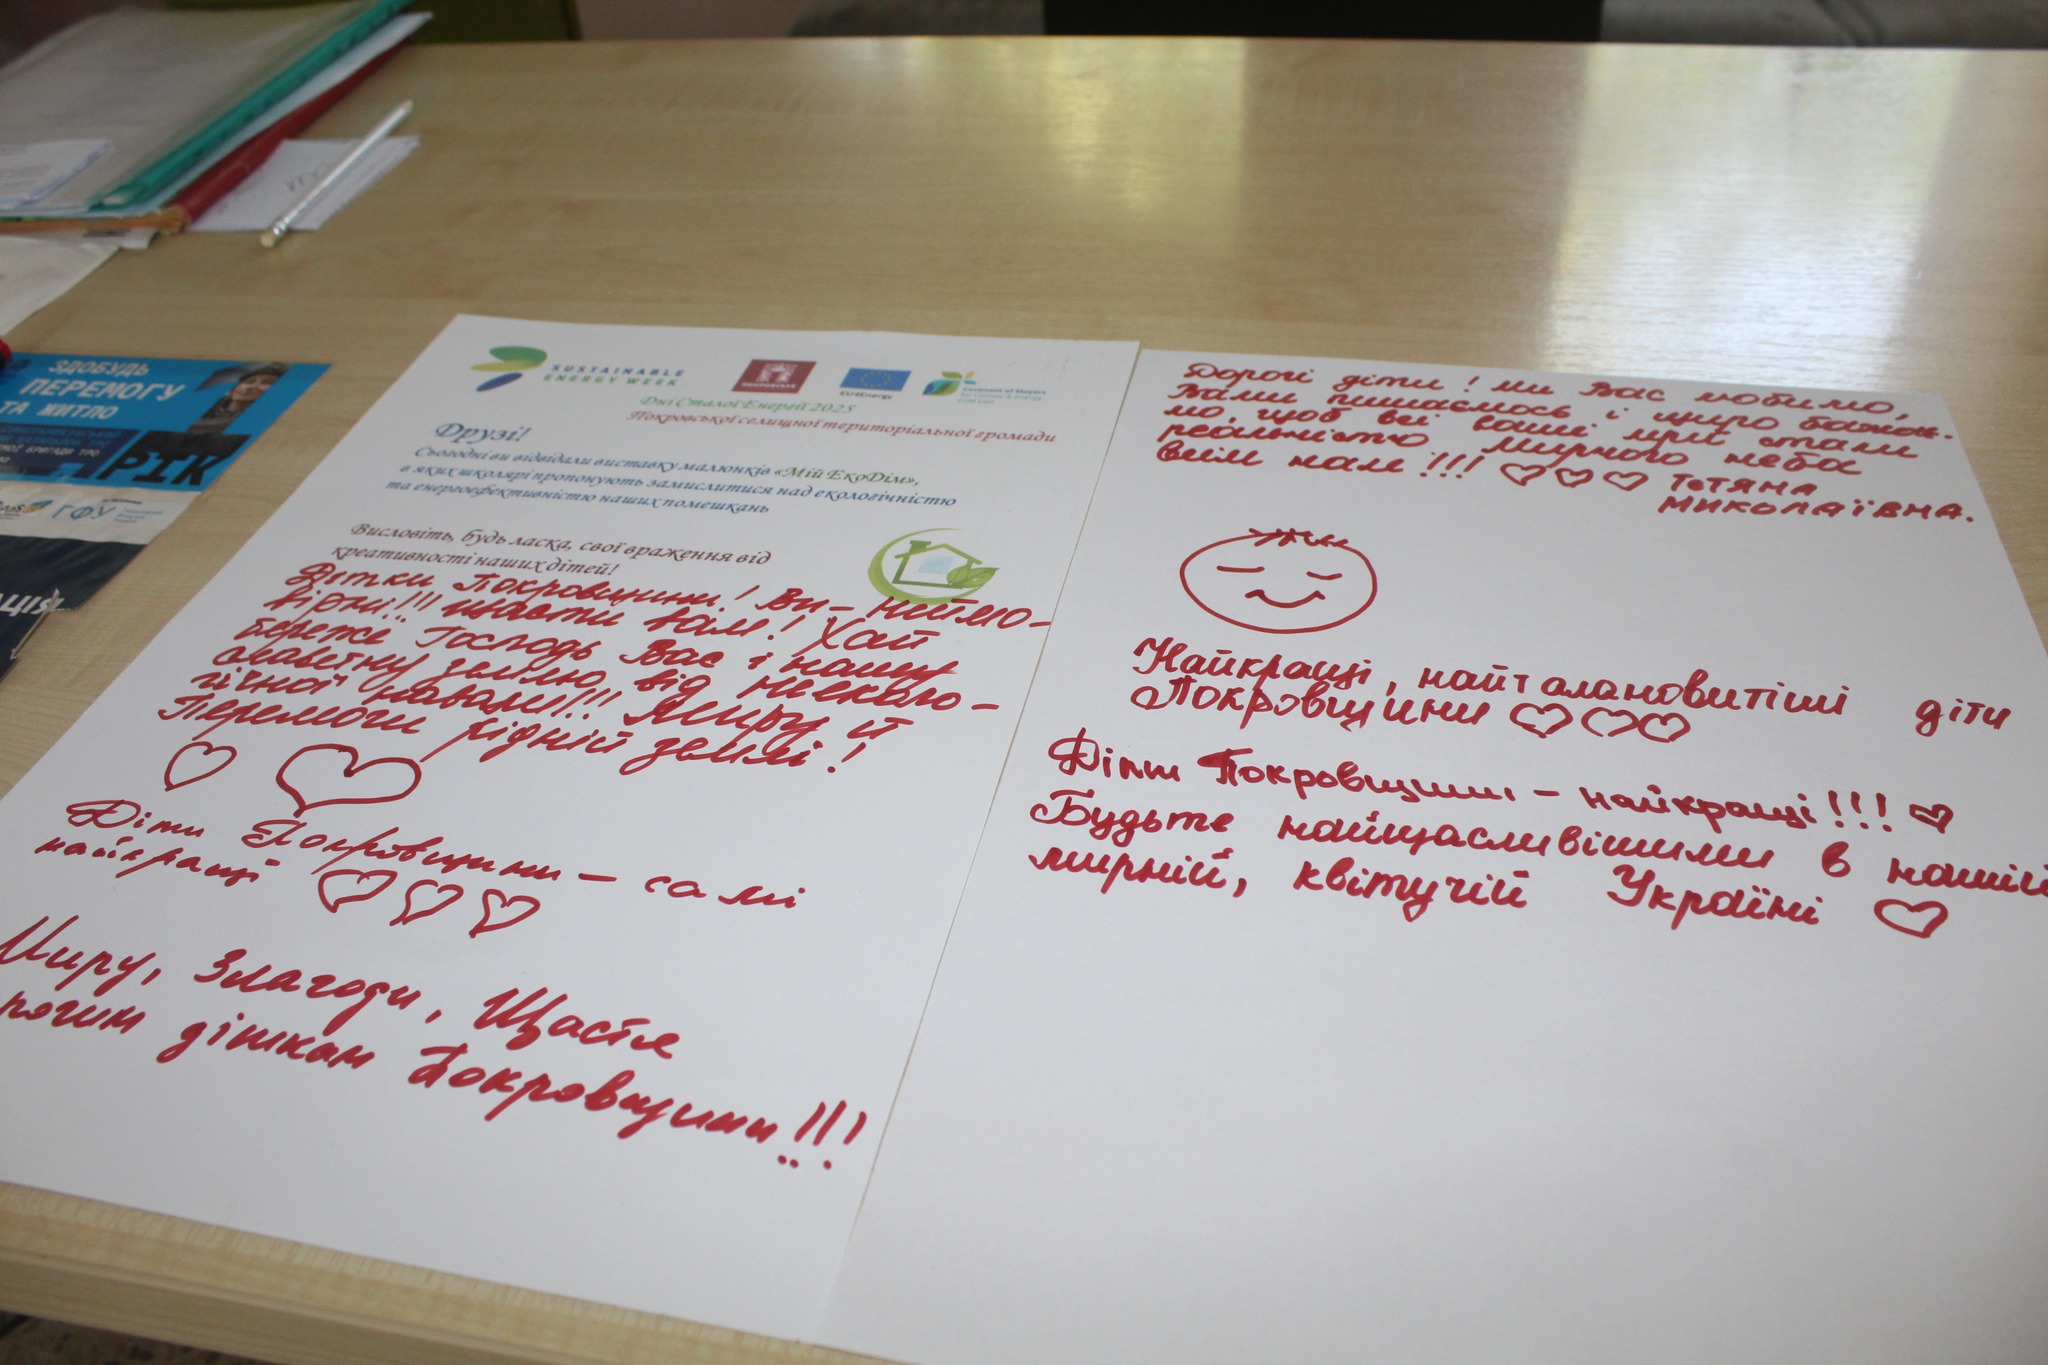 ЗДОБУДЬ
ПЕРЕМОГУ
ТА ЖИТЛО
РІК
ГФУ
SUSTAINABLE
ENERGY WEEK
ПОКРОВСЬКЕ
EU4Energy
Covenant of Mayors
for Climate & Energy
Дні Сталої Енергії 2025
Покровської селищної територіальної громади
Друзі!
Сьогодні ви відвідали виставку малюнків «Мій ЕкоДім»,
в яких школярі пропонують замислитися над екологічністю
та енергоефективністю наших помешкань
Висловіть, будь ласка, свої враження від
креативності наших дітей!
Дітки Покровщини! Ви – неймо-
вірні!!! Щастя вам! Хай
береже Господь Вас і нашу
славетну землю від неєколо-
гічної навали!!! Миру й
Перемоги рідній землі!
Діти Покровщини – самі
найкращі
Миру, Злагоди, Щастя
діткам Покровщини!!!
Дорогі діти! Ми Вас любимо,
Вами пишаємось і щиро бажає-
мо, щоб всі ваші мрії стали
реальністю Мирного неба
всім нам!!! Тетяна
Миколаївна.
Найкращі, найталановитіші діти
Покровщини
Діти Покровщини – найкращі!!!
Будьте найщасливішими в нашій
мирній, квітучій Україні